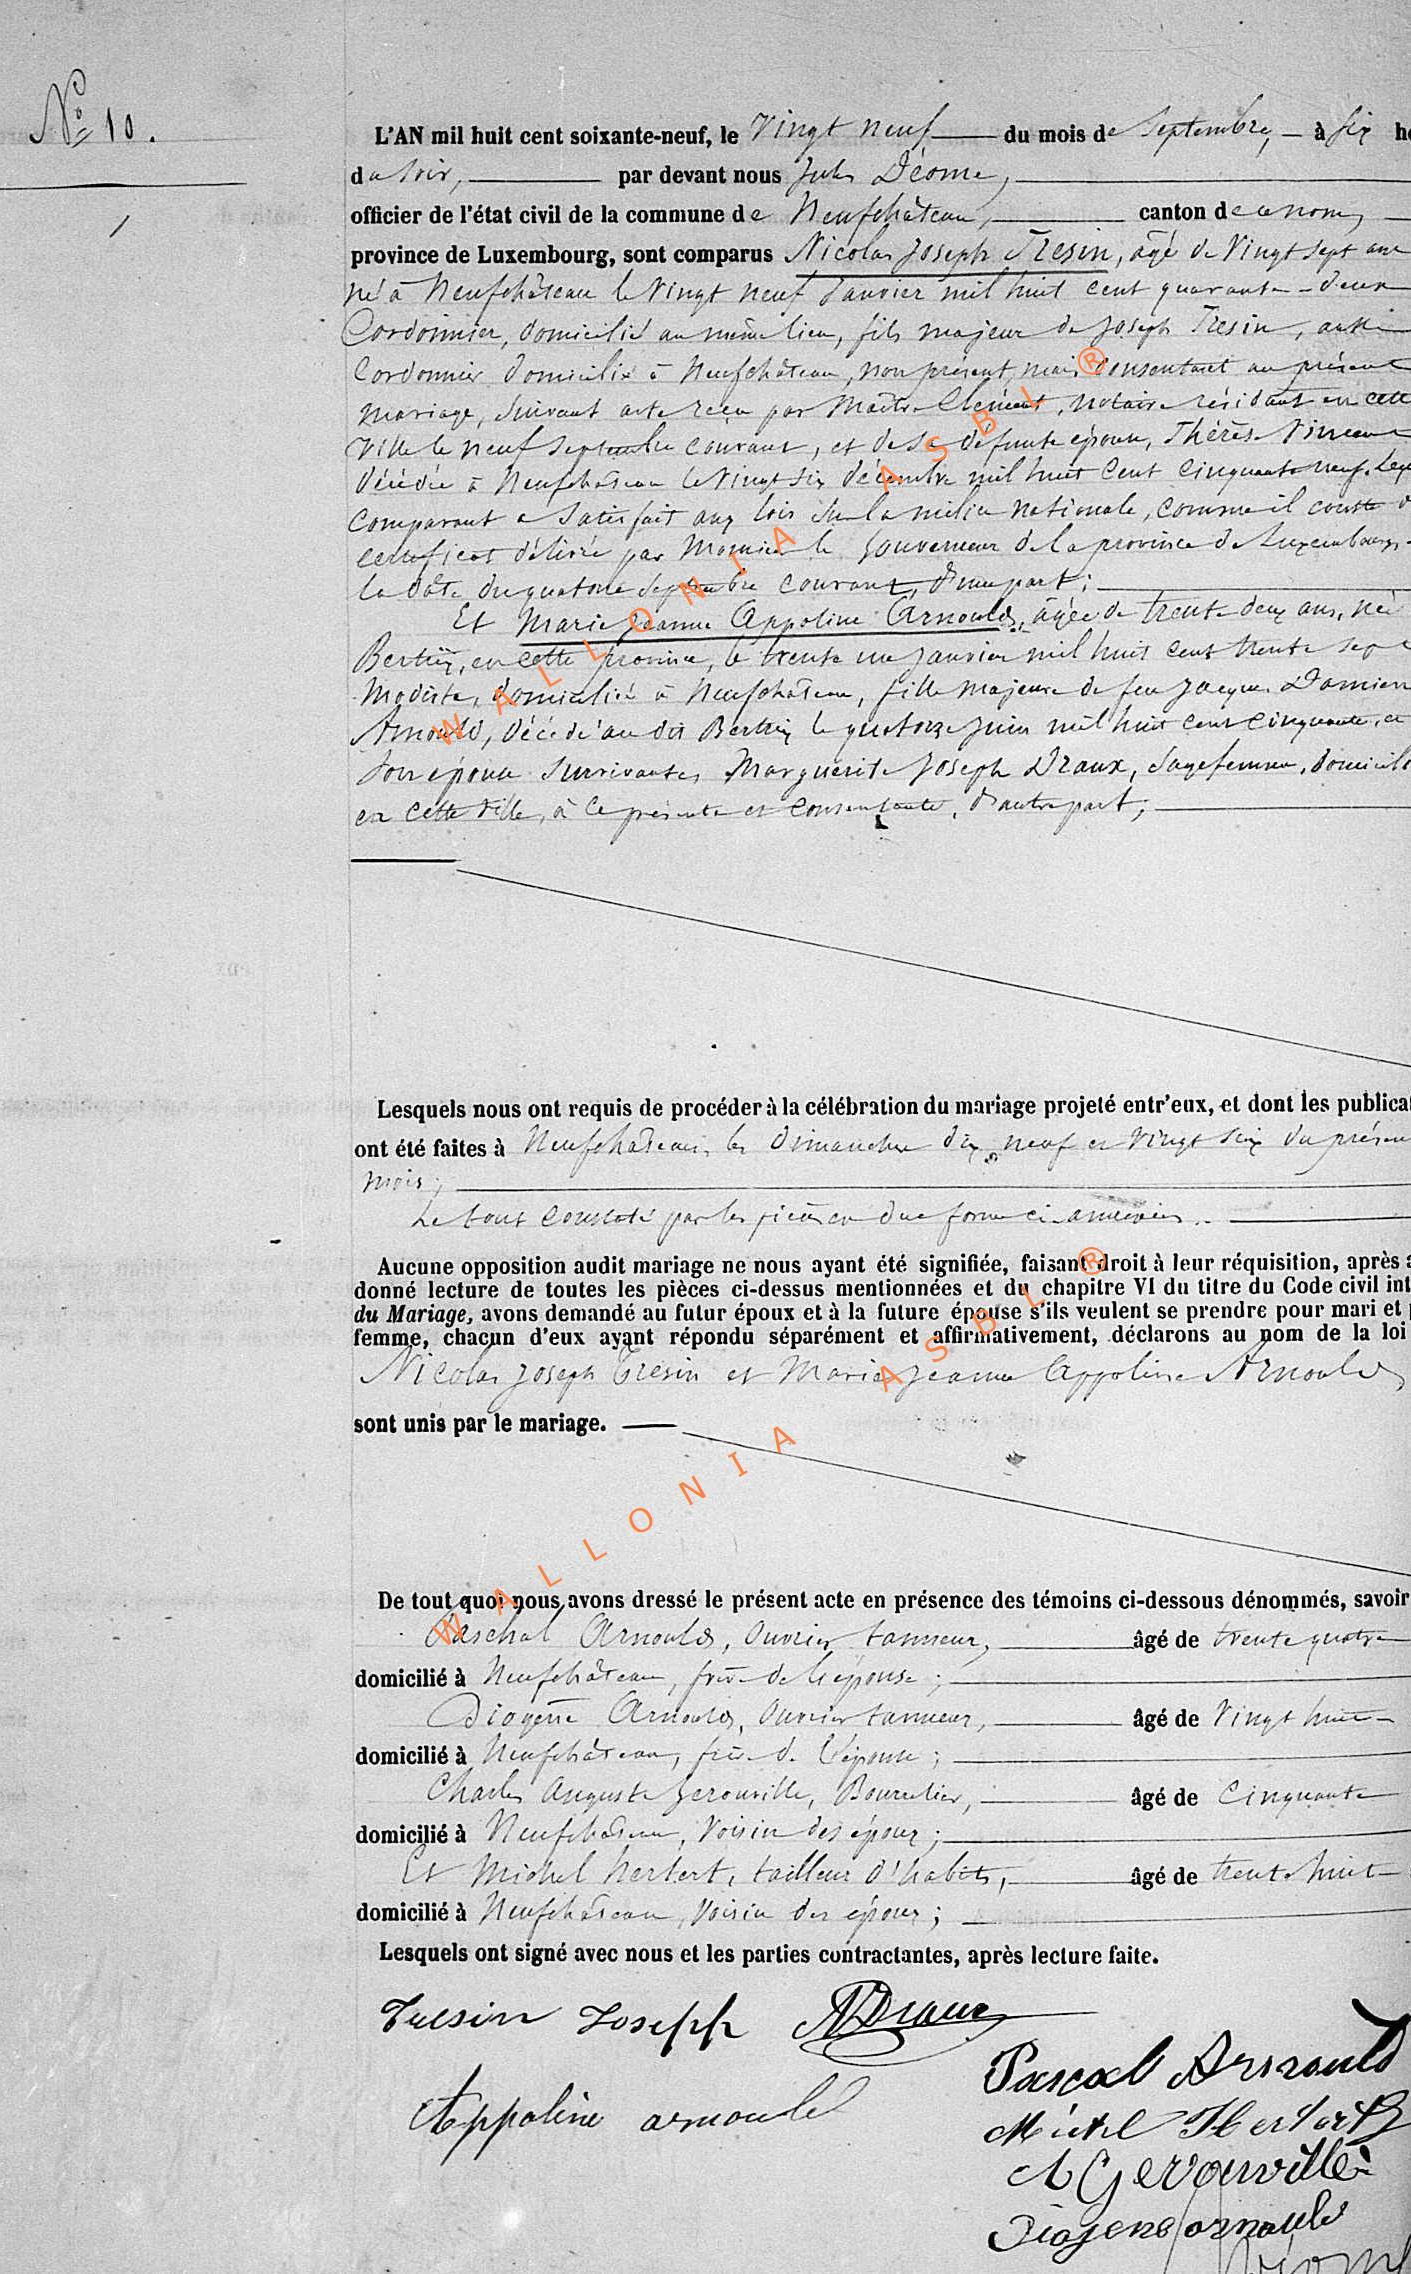 No 10.
L'AN mil huit cent soixante-neuf, le Vingt neuf du mois de Septembre, à six he
du soir, par devant nous Jules Déome,
officier de l'état civil de la commune de Neufchâteau, canton de ce nom,
province de Luxembourg, sont comparus Nicolas Joseph Tresin, âgé de Vingt sept ans
né à Neufchâteau le Vingt neuf Janvier mil huit cent quarante-deux
Cordonnier, domicilié au même lieu, fils majeur de Joseph Tresin, aussi
Cordonnier domicilié à Neufchâteau, non présent, mais consentant au présent
mariage, suivant acte reçu par Maître Clément, notaire résidant en cette
Ville le neuf Septembre courant, et de sa défunte épouse, Thérèse Vincent
décédée à Neufchâteau le Vingt six décembre mil huit cent cinquante neuf.
Comparant a satisfait aux lois sur la milice nationale, comme il conste
certificat délivré par Monsieur le Gouverneur de la province de Luxembourg
la date du quatorze Septembre courant, d'une part;
Et Marie Jeanne Appoline Arnould, âgée de trente deux ans, née
Bertrix, en cette province, le trente un Janvier mil huit cent trente sept
Modiste, domiciliée à Neufchâteau, fille majeure de feu Jacques Damien
Arnould, décédé au dit Bertrix le quatorze juin mil huit cent cinquante, et
son épouse survivante, Marguerite Joseph Draux, Sagefemme, domicili
en cette Ville, à ce présente et consentante, d'autre part;
Lesquels nous ont requis de procéder à la célébration du mariage projeté entr'eux, et dont les publica
ont été faites à Neufchâteau, les dimanches dix neuf et vingt six du présent
mois;
Le tout constaté par les pièces en due forme ci-annexées.
Aucune opposition audit mariage ne nous ayant été signifiée, faisant droit à leur réquisition, après a
donné lecture de toutes les pièces ci-dessus mentionnées et du chapitre VI du titre du Code civil int
du Mariage, avons demandé au futur époux et à la future épouse s'ils veulent se prendre pour mari et p
femme, chacun d'eux ayant répondu séparément et affirmativement, déclarons au nom de la loi
Nicolas Joseph Tresin et Marie Jeanne Appoline Arnould
sont unis par le mariage.
De tout quoi nous avons dressé le présent acte en présence des témoins ci-dessous dénommés, savoir
Paschal Arnould, Ouvrier tanneur, âgé de trente quatre
domicilié à Neufchâteau, frère de l'épouse;
Diogène Arnould, Ouvrier tanneur, âgé de Vingt huit
domicilié à Neufchâteau, frère de l'épouse;
Charles Auguste Gerouville, Bourrelier, âgé de Cinquante
domicilié à Neufchâteau, Voisin des époux;
Et Michel Herbert, tailleur d'habits, âgé de trente huit
domicilié à Neufchâteau, Voisin des époux;
Lesquels ont signé avec nous et les parties contractantes, après lecture faite.
Tresin Joseph MDraux
Pascal Arnould
Appoline arnould
Michel Herbert
A Gerouville
Diogene arnould
WALLONIA ASBL ®
WALLONIA ASBL ®